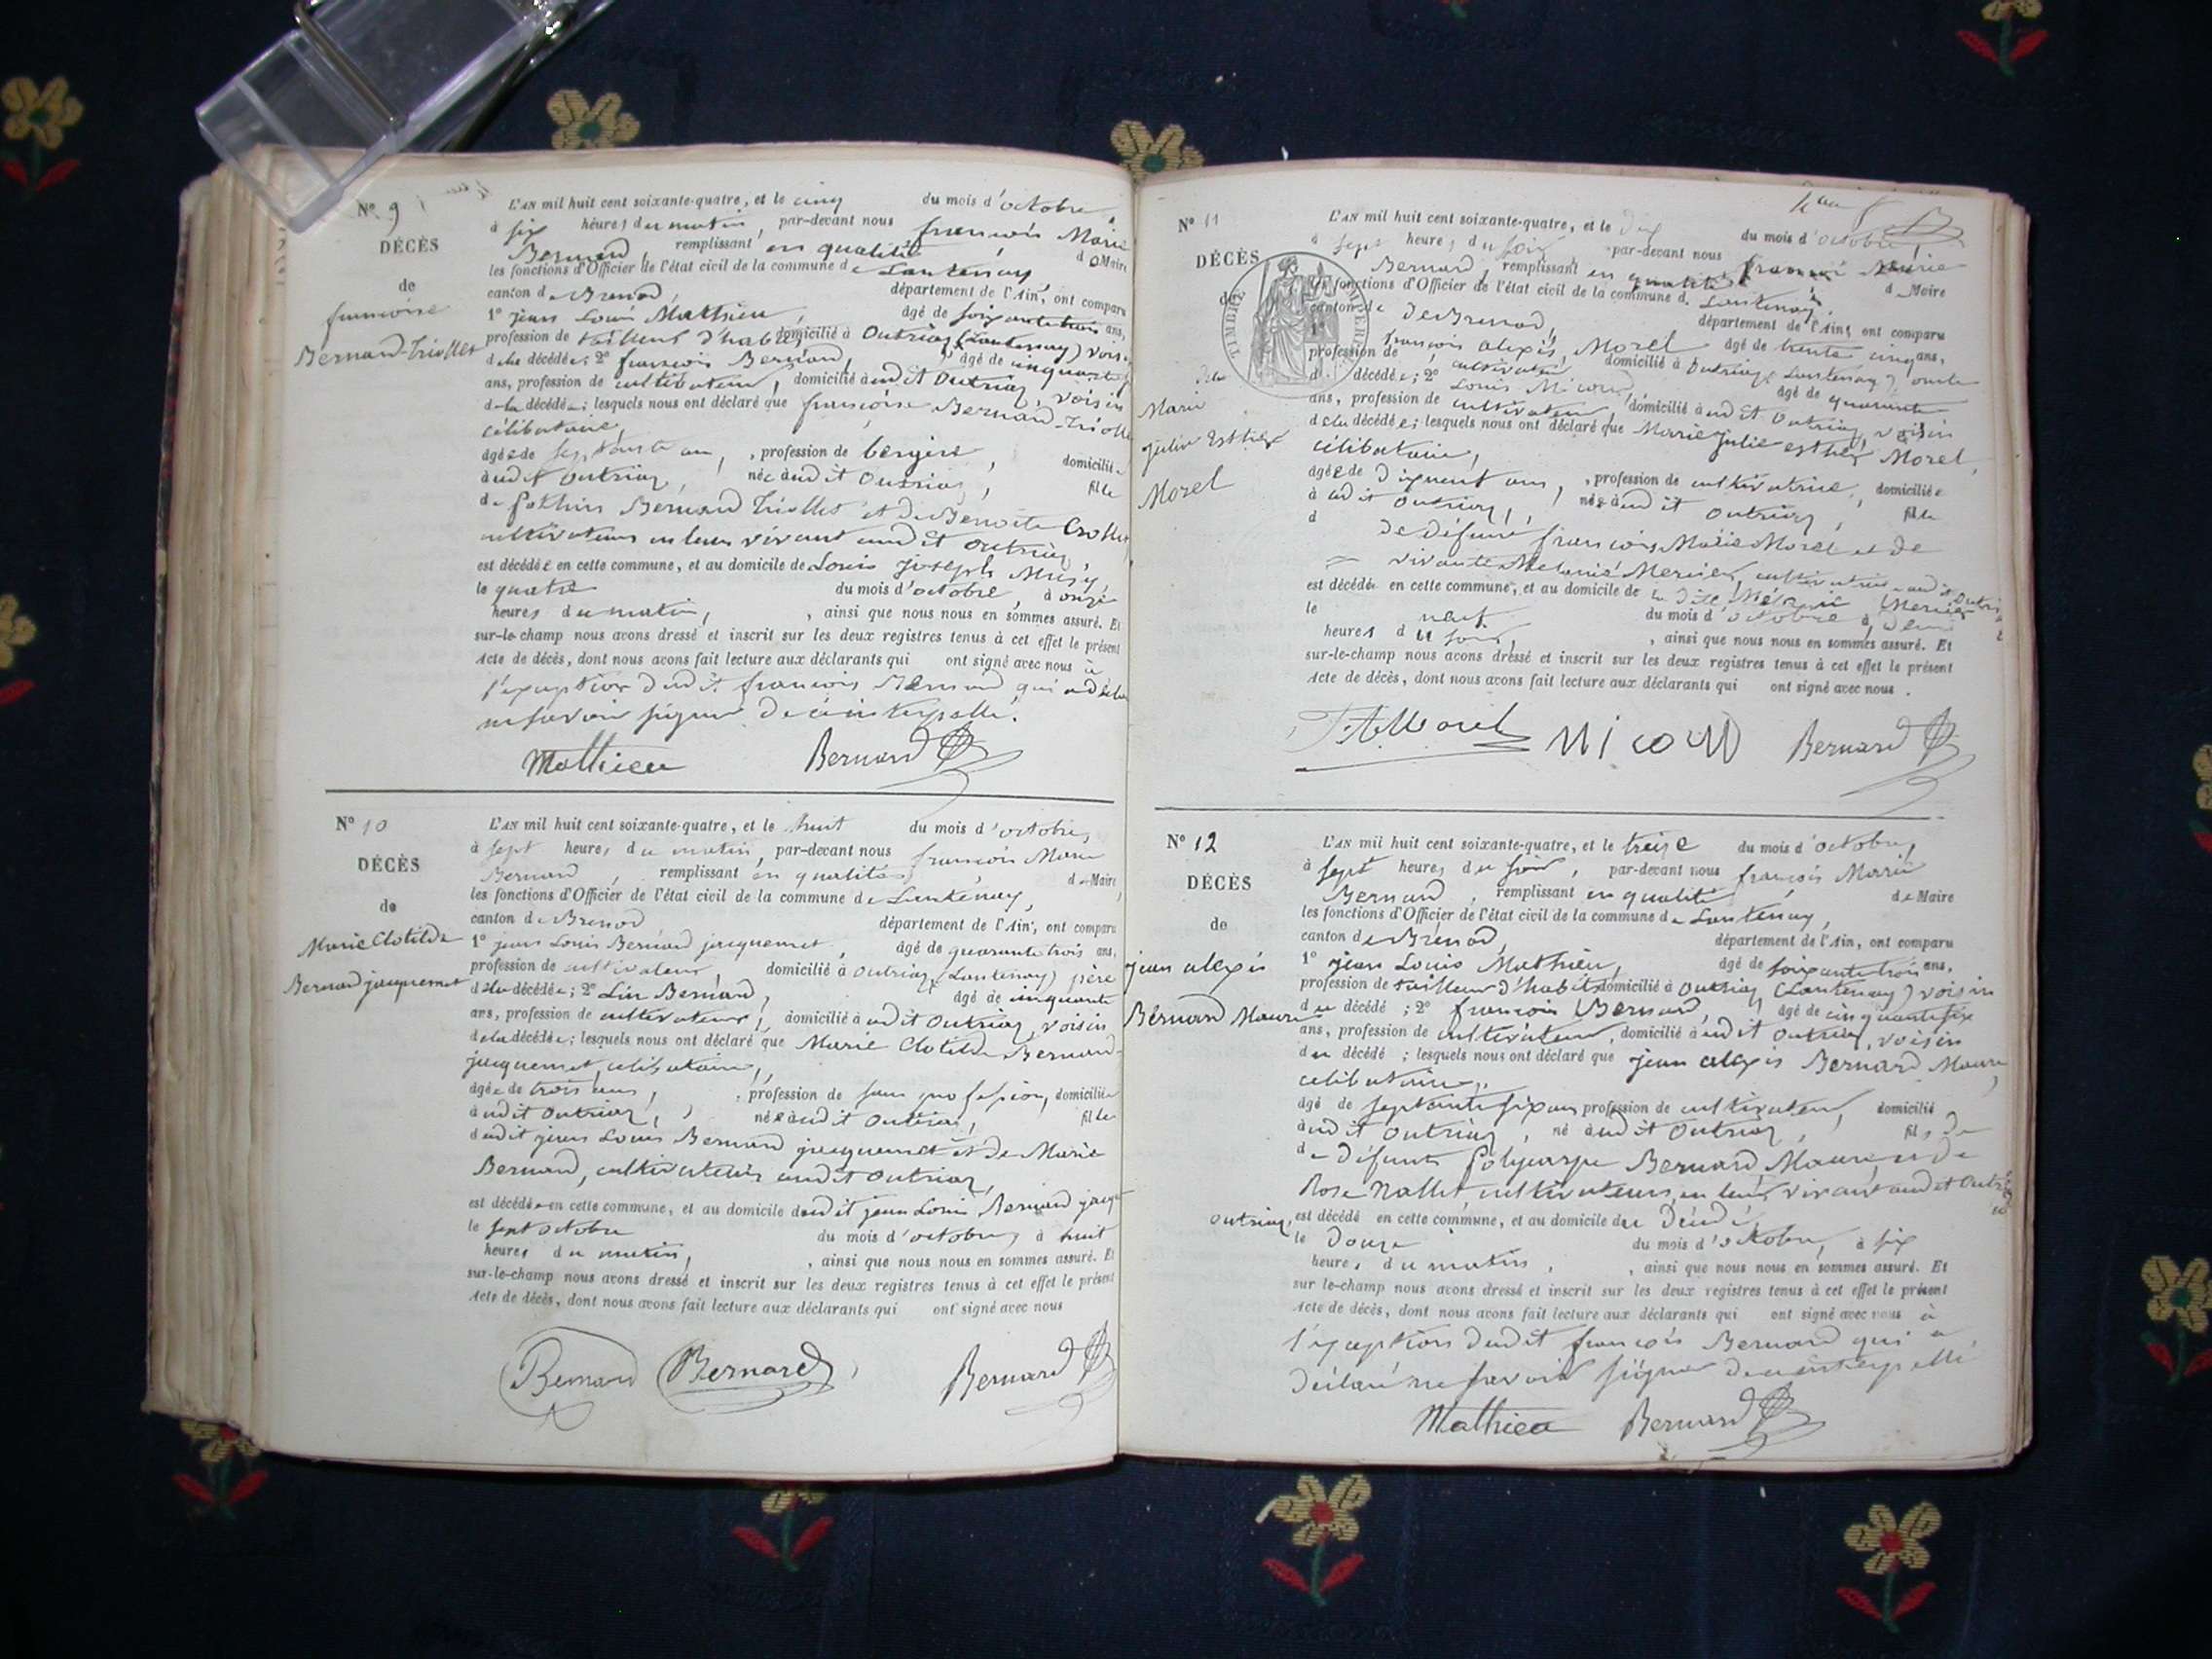 Nº 9
DÉCÈS
de
françoise
Bernard-Triollet
L'AN mil huit cent soixante-quatre, et le cinq du mois d'octobre
à six heures du matin, par-devant nous françois Marie
Bernard, remplissant en qualité de Maire
les fonctions d'Officier de l'état civil de la commune de Lantenay
canton de Brenod, département de l'Ain, ont comparu
1º jean Louis Mathieu, âgé de soixante trois ans,
profession de tailleur d'habits domicilié à Outriaz (Lantenay) voisin
de la décédée; 2º françois Bernard, âgé de cinquante
ans, profession de cultivateur, domicilié audit Outriaz, voisin
de la décédée; lesquels nous ont déclaré que françoise Bernard-Triollet
célibataire,
âgée de ans, profession de bergère, domiciliée
audit Outriaz, née audit Outriaz, fille
de Bernard Triollet et de Benoite Crollet
cultivateurs en leur vivant audit Outriaz
est décédée en cette commune, et au domicile de Louis joseph
le quatre du mois d'octobre, à onze
heures du matin, ainsi que nous nous en sommes assuré. Et
sur-le-champ nous avons dressé et inscrit sur les deux registres tenus à cet effet le présent
Acte de décès, dont nous avons fait lecture aux déclarants qui ont signé avec nous à
l'exception dudit françois Bernard qui a déclaré
ne savoir signer de ce interpellé.
Mathieu Bernard
Nº 10
DÉCÈS
de
Marie Clotilde
Bernard jacquemet
L'AN mil huit cent soixante-quatre, et le huit du mois d'octobre,
à sept heures du matin, par-devant nous françois Marie
Bernard, remplissant en qualité de Maire
les fonctions d'Officier de l'état civil de la commune de Lantenay,
canton de Brenod département de l'Ain, ont comparu
1º jean Louis Bernard jacquemet, âgé de quarante trois ans,
profession de cultivateur, domicilié à Outriaz (Lantenay) père
de la décédée; 2º Lin Bernard, âgé de cinquante
ans, profession de cultivateur, domicilié audit Outriaz, voisin
de la décédée; lesquels nous ont déclaré que Marie Clotilde Bernard-
jacquemet, célibataire,
âgée de trois ans, profession de sans profession, domiciliée
audit Outriaz, née audit Outriaz, fille
dudit jean Louis Bernard jacquemet et de Marie
Bernard, cultivateurs audit Outriaz,
est décédée en cette commune, et au domicile dudit jean Louis Bernard jacq
le sept octobre du mois d'octobre, à huit
heures du matin, ainsi que nous nous en sommes assuré. Et
sur-le-champ nous avons dressé et inscrit sur les deux registres tenus à cet effet le présent
Acte de décès, dont nous avons fait lecture aux déclarants qui ont signé avec nous
Bernard Bernard Bernard
Nº 11
DÉCÈS
de
de la
Marie
julie Esther
Morel
TIMBRE IMPÉRIAL
L'AN mil huit cent soixante-quatre, et le dix du mois d'octobre,
à sept heures du soir par-devant nous françois Marie
Bernard, remplissant en qualité de Maire
les fonctions d'Officier de l'état civil de la commune de Lantenay,
canton de de Brenod, département de l'Ain, ont comparu
1º françois alexis, Morel âgé de trente cinq ans,
profession de cultivateur domicilié à Outriaz (Lantenay) oncle
d décédée; 2º Louis Nicoud, âgé de quarante
ans, profession de cultivateur, domicilié audit Outriaz, voisin
de la décédée; lesquels nous ont déclaré que Marie julie esther Morel,
célibataire,
âgée de dix huit ans, profession de cultivatrice, domiciliée
à audit Outriaz, née audit Outriaz, fille
d de défunt françois Marie Morel et de
vivante Melanie Mercier, cultivatrice audit Outri
est décédée en cette commune, et au domicile de la dite Mélanie Mercier
le neuf du mois d'octobre à
heures du soir, ainsi que nous nous en sommes assuré. Et
sur-le-champ nous avons dressé et inscrit sur les deux registres tenus à cet effet le présent
Acte de décès, dont nous avons fait lecture aux déclarants qui ont signé avec nous.
F A Morel Nicoud Bernard
Nº 12
DÉCÈS
de
jean alexis
Bernard Maure
L'AN mil huit cent soixante-quatre, et le treize du mois d'octobre,
à sept heures du soir, par-devant nous françois Marie
Bernard, remplissant en qualité de Maire
les fonctions d'Officier de l'état civil de la commune de Lantenay,
canton de Brénod, département de l'Ain, ont comparu
1º jean Louis Mathieu, âgé de soixante trois ans,
profession de tailleur d'habits domicilié à Outriaz (Lantenay) voisin
du décédé; 2º françois Bernard, âgé de cinquante six
ans, profession de cultivateur, domicilié audit Outriaz, voisin
du décédé; lesquels nous ont déclaré que jean alexis Bernard Maure
célibataire,
âgé de septante six ans profession de cultivateur, domicilié
audit Outriaz, né audit Outriaz, fils de
de défunts Polycarpe Bernard Maure, et de
Rose Nallet cultivateurs en leur vivant audit Outri
Outriaz, est décédé en cette commune, et au domicile du
le douze du mois d'octobre, à six
heures du matin, ainsi que nous nous en sommes assuré. Et
sur le-champ nous avons dressé et inscrit sur les deux registres tenus à cet effet le présent
Acte de décès, dont nous avons fait lecture aux déclarants qui ont signé avec nous à
l'exception dudit françois Bernard qui a
déclaré ne savoir signer de ce interpellé
Mathieu Bernard